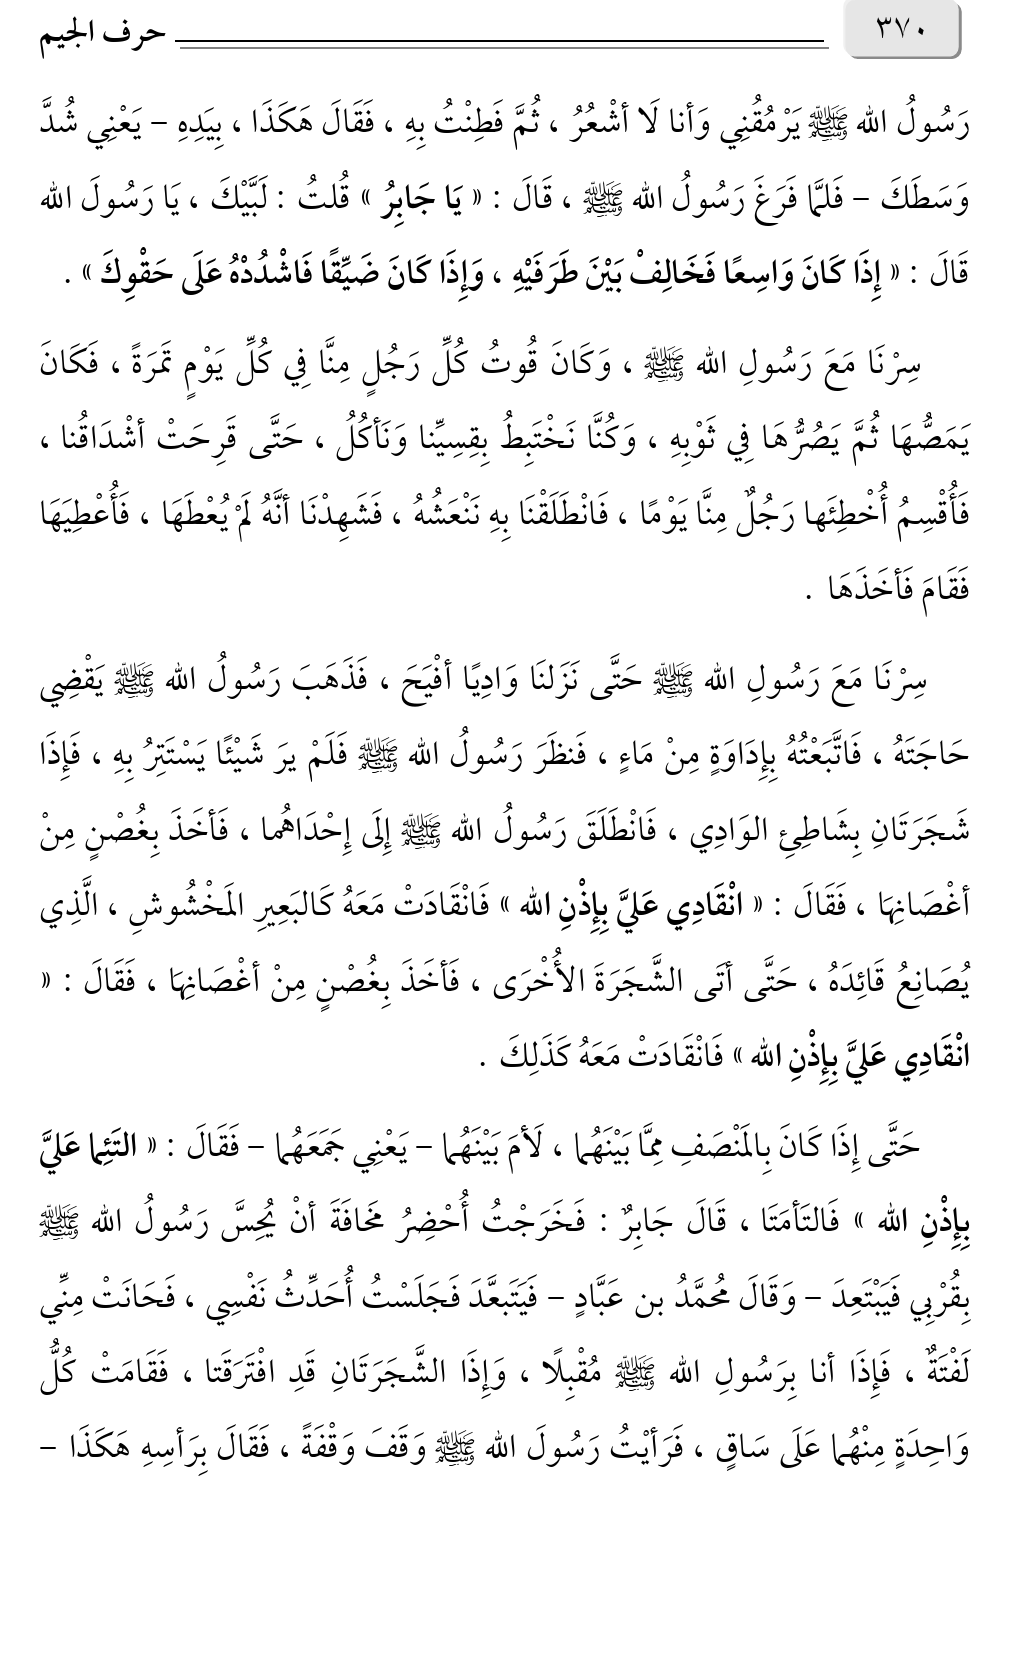 ٣٧٠ حرف الجيم
رَسُولُ الله ﷺ يَرْمُقُنِي وَأنا لَا أشْعُرُ ، ثُمَّ فَطِنْتُ بِهِ ، فَقَالَ هَكَذَا ، بِيَدِهِ – يَعْنِي شُدَّ
وَسَطَكَ – فَلمَّا فَرَغَ رَسُولُ الله ﷺ ، قَالَ : « يَا جَابِرُ » قُلتُ : لَبَّيْكَ ، يَا رَسُولَ الله
قَالَ : « إِذَا كَانَ وَاسِعًا فَخَالِفْ بَيْنَ طَرَفَيْهِ ، وَإِذَا كَانَ ضَيِّقًا فَاشْدُدْهُ عَلَى حَقْوِكَ » .
سِرْنَا مَعَ رَسُولِ الله ﷺ ، وَكَانَ قُوتُ كُلِّ رَجُلٍ مِنَّا فِي كُلِّ يَوْمٍ تَمرَةً ، فَكَانَ
يَمَصُّهَا ثُمَّ يَصُرُّهَا فِي ثَوْبِهِ ، وَكُنَّا نَخْتَبِطُ بِقِسِيِّنا وَنَأكُلُ ، حَتَّى قَرِحَتْ أشْدَاقُنا ،
فَأُقْسِمُ أُخْطِئَها رَجُلٌ مِنَّا يَوْمًا ، فَانْطَلَقْنَا بِهِ نَنْعَشُهُ ، فَشَهِدْنَا أنَّهُ لَمْ يُعْطَهَا ، فَأُعْطِيَهَا
فَقَامَ فَأخَذَهَا .
سِرْنَا مَعَ رَسُولِ الله ﷺ حَتَّى نَزَلنَا وَادِيًا أفْيَحَ ، فَذَهَبَ رَسُولُ الله ﷺ يَقْضِي
حَاجَتَهُ ، فَاتَّبَعْتُهُ بِإِدَاوَةٍ مِنْ مَاءٍ ، فَنظَرَ رَسُولُ الله ﷺ فَلَمْ يرَ شَيْئًا يَسْتَتِرُ بِهِ ، فَإِذَا
شَجَرَتَانِ بِشَاطِئِ الوَادِي ، فَانْطَلَقَ رَسُولُ الله ﷺ إِلَى إِحْدَاهُما ، فَأخَذَ بِغُصْنٍ مِنْ
أغْصَانِهَا ، فَقَالَ : « انْقَادِي عَليَّ بِإِذْنِ الله » فَانْقَادَتْ مَعَهُ كَالبَعِيرِ المَخْشُوشِ ، الَّذِي
يُصَانِعُ قَائِدَهُ ، حَتَّى أتَى الشَّجَرَةَ الأُخْرَى ، فَأخَذَ بِغُصْنٍ مِنْ أغْصَانِهَا ، فَقَالَ : «
انْقَادِي عَليَّ بِإِذْنِ الله » فَانْقَادَتْ مَعَهُ كَذَلِكَ .
حَتَّى إِذَا كَانَ بِالمَنْصَفِ مِمَّا بَيْنَهُما ، لَأمَ بَيْنَهُما – يَعْنِي جَمَعَهُما – فَقَالَ : « التَئِما عَليَّ
بِإِذْنِ الله » فَالتَأمَتَا ، قَالَ جَابِرٌ : فَخَرَجْتُ أُحْضِرُ مَخافَةَ أنْ يُحِسَّ رَسُولُ الله ﷺ
بِقُرْبِي فَيَبْتَعِدَ – وَقَالَ مُحمَّدُ بن عَبَّادٍ – فَيَتَبعَّدَ فَجَلَسْتُ أُحَدِّثُ نَفْسِي ، فَحَانَتْ مِنِّي
لَفْتَةٌ ، فَإِذَا أنا بِرَسُولِ الله ﷺ مُقْبِلًا ، وَإِذَا الشَّجَرَتَانِ قَدِ افْتَرَقَتا ، فَقَامَتْ كُلُّ
وَاحِدَةٍ مِنْهُما عَلَى سَاقٍ ، فَرَأيْتُ رَسُولَ الله ﷺ وَقَفَ وَقْفَةً ، فَقَالَ بِرَأسِهِ هَكَذَا –